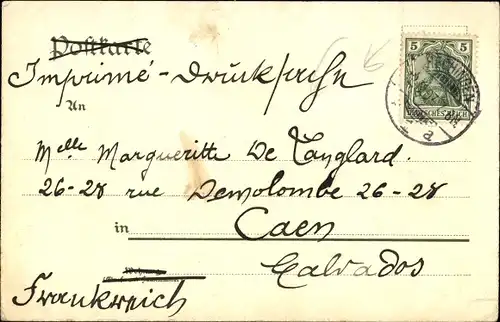 Postkarte
Imprimé - Drucksache
An
Melle Margueritte De Tanglard.
26-28 rue Demolombe 26-28
in Caen
Calvados
Frankreich
5 5
DEUTSCHES REICH